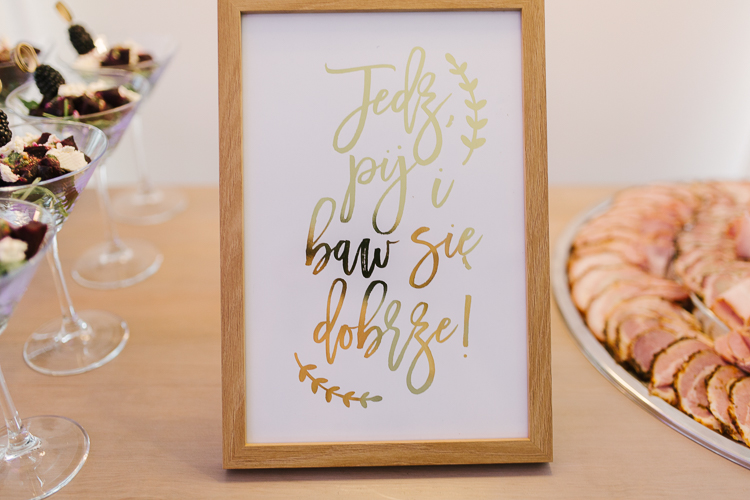 Jedz,
pij i
baw się
dobrze!